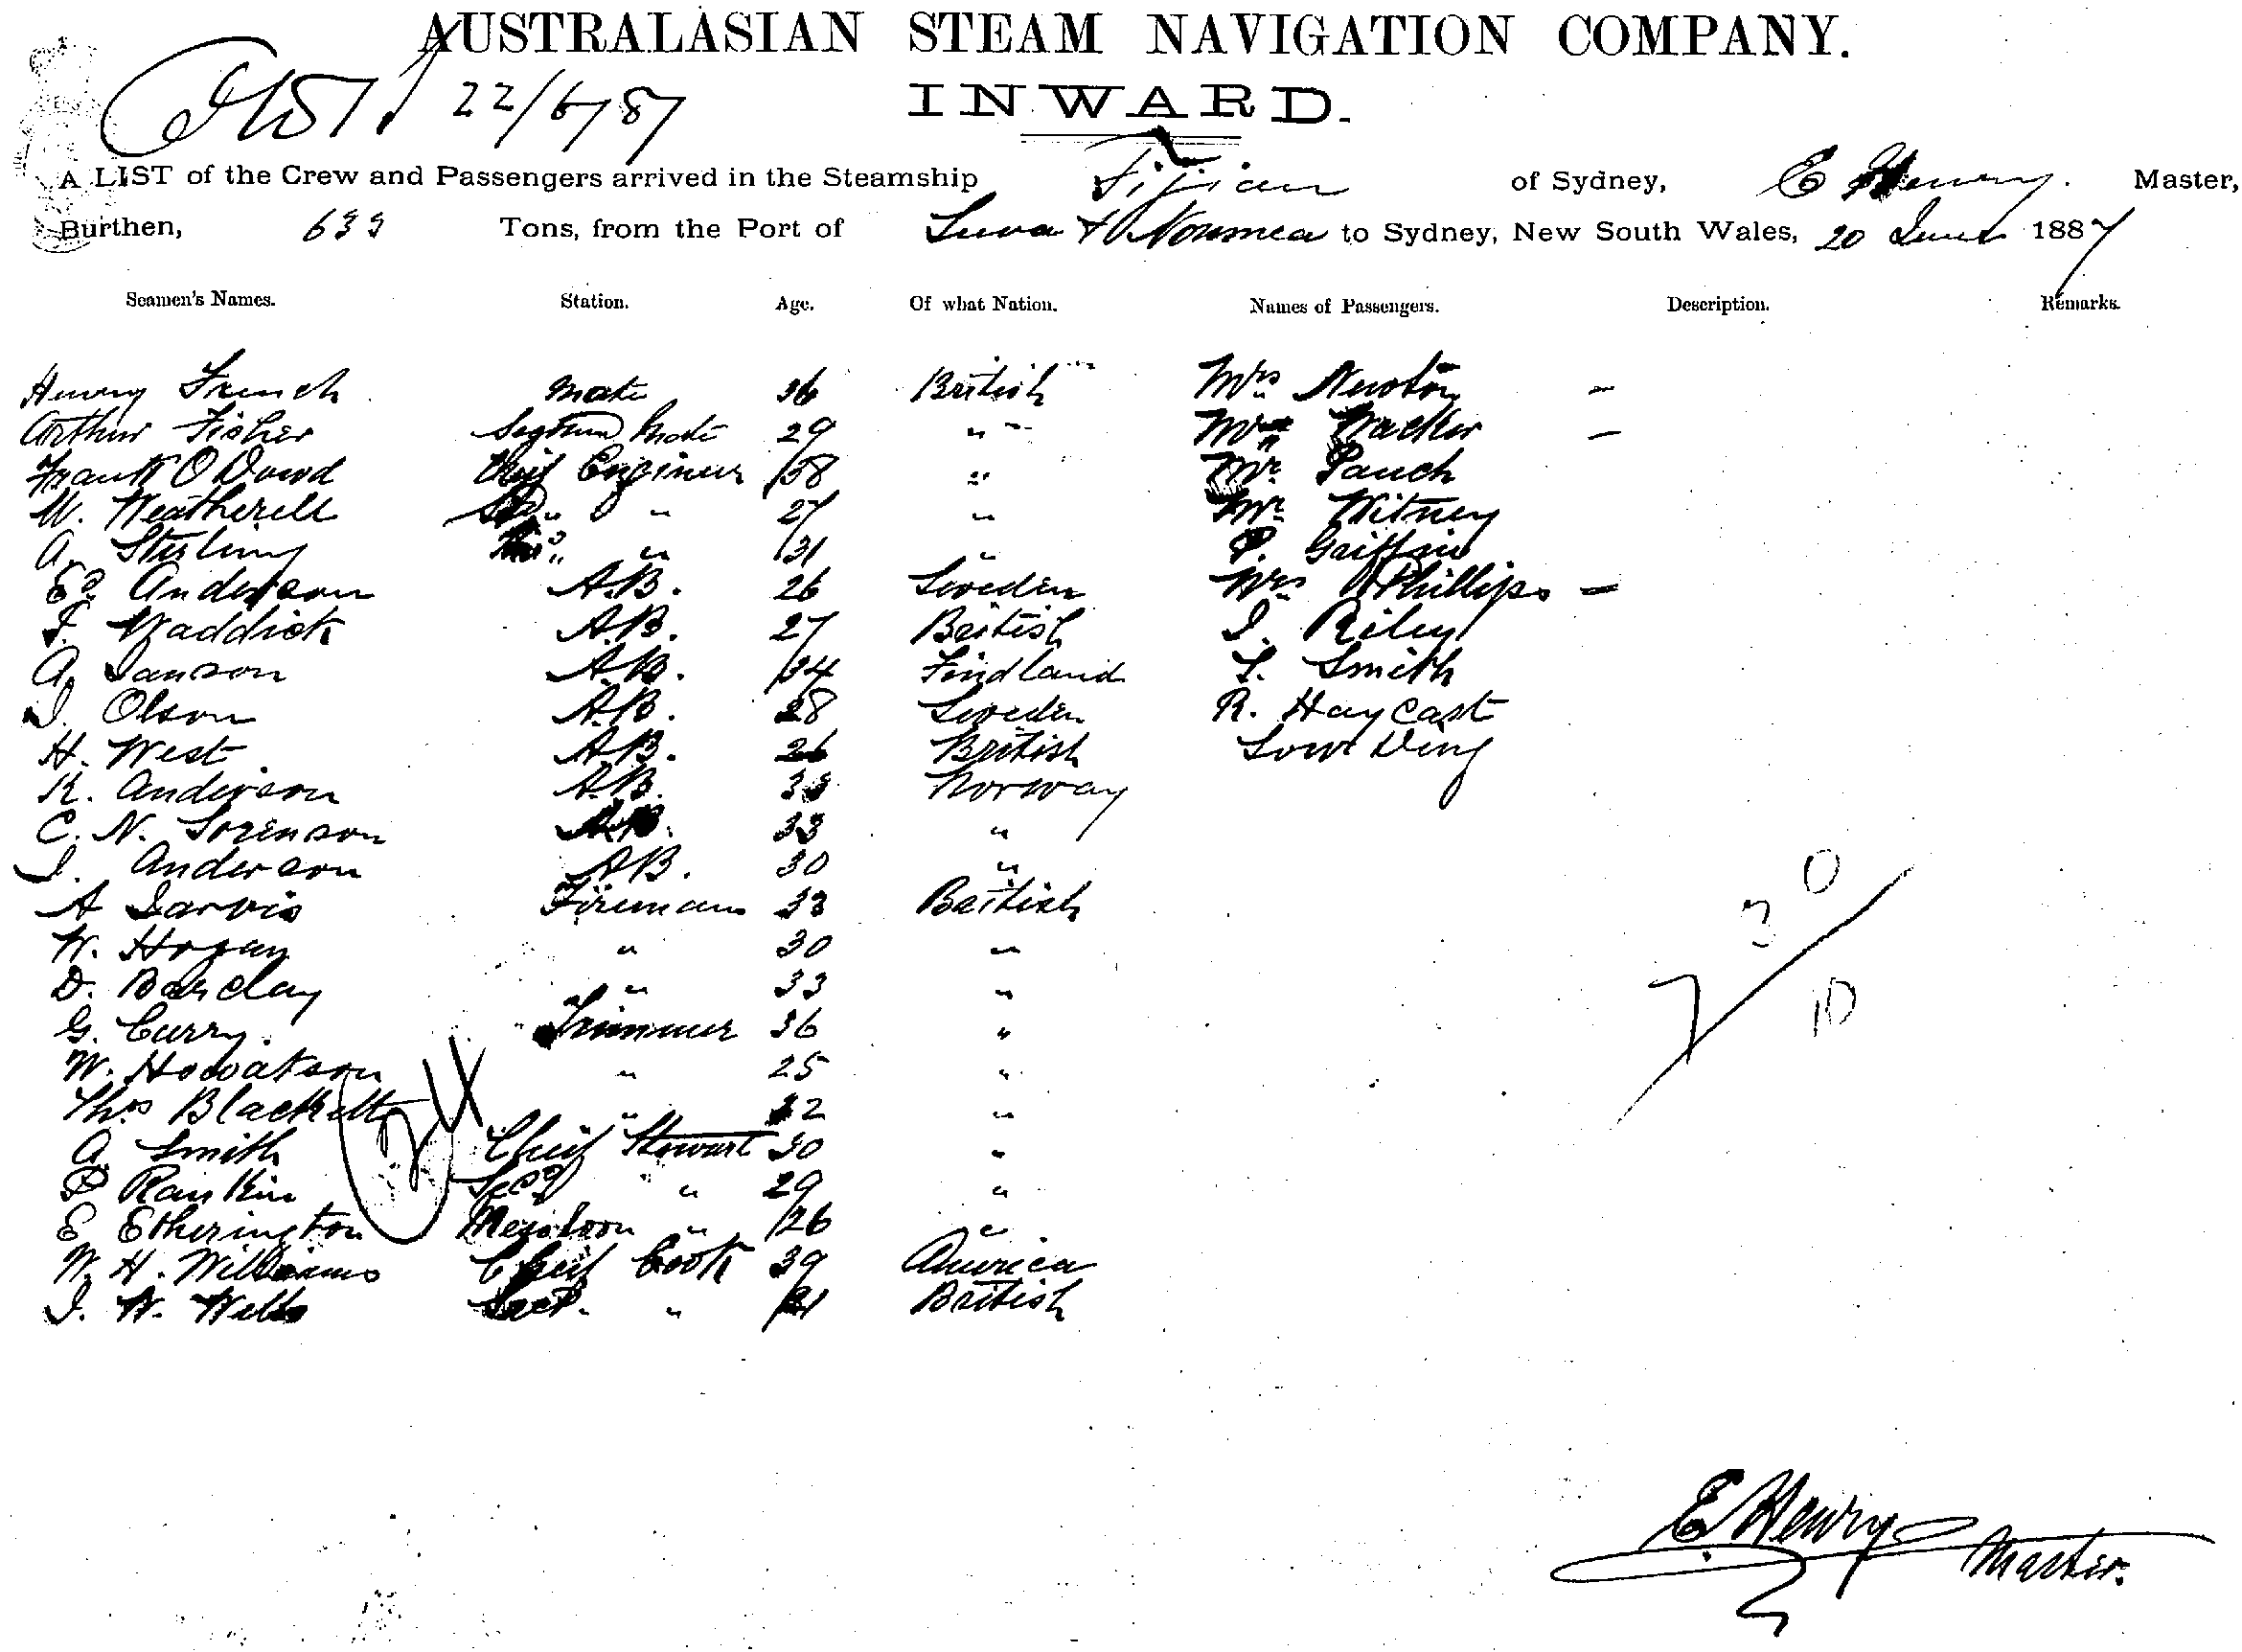 AUSTRALASIAN STEAM NAVIGATION COMPANY.
22/6/87
INWARD.
A LIST of the Crew and Passengers arrived in the Steamship Fijian of Sydney, E Henry. Master,
Burthen, 639 Tons, from the Port of Suva & Noumea to Sydney, New South Wales, 20 June 1887
Seamen's Names. Station. Age. Of what Nation. Names of Passengers. Description. Remarks.
Henry French Mate 36 British Mrs Newton –
Arthur Fisher Mate 29 " Walker –
Frank O Dowd Chief Engineer 38 " Mr
W. Weatherell " 27 " Mr Witney
A. Sterling " 31 " P. Griffin
Ed. Anderson A.B. 26 Sweden Mrs Phillips –
F. Waddick A.B. 27 British J. Riley
A. Janson A.B. 34 Findland T. Smith
J. Olson A.B. 28 Sweden R. Haycast
H. West A.B. 26 British Low Ding
R. Anderson A.B. Norway
C. N. Sorenson A.B. 33 "
J. Anderson A.B. 30 "
A Jarvis Fireman 33 British
W. Hogan " 30 "
D. Barclay " 33 "
G. Curry. Trimmer 36 "
W. Howatson " 25 "
Thos Blackett " 32 "
24
A. Smith Chief Stewart 30 "
P Rankin Secd " 29 "
E Etherington " 26 "
W. H. Williams Chief Cook 39 America
J. W. Wells " 31 British
3 0
7 10
E. Henry
Master.